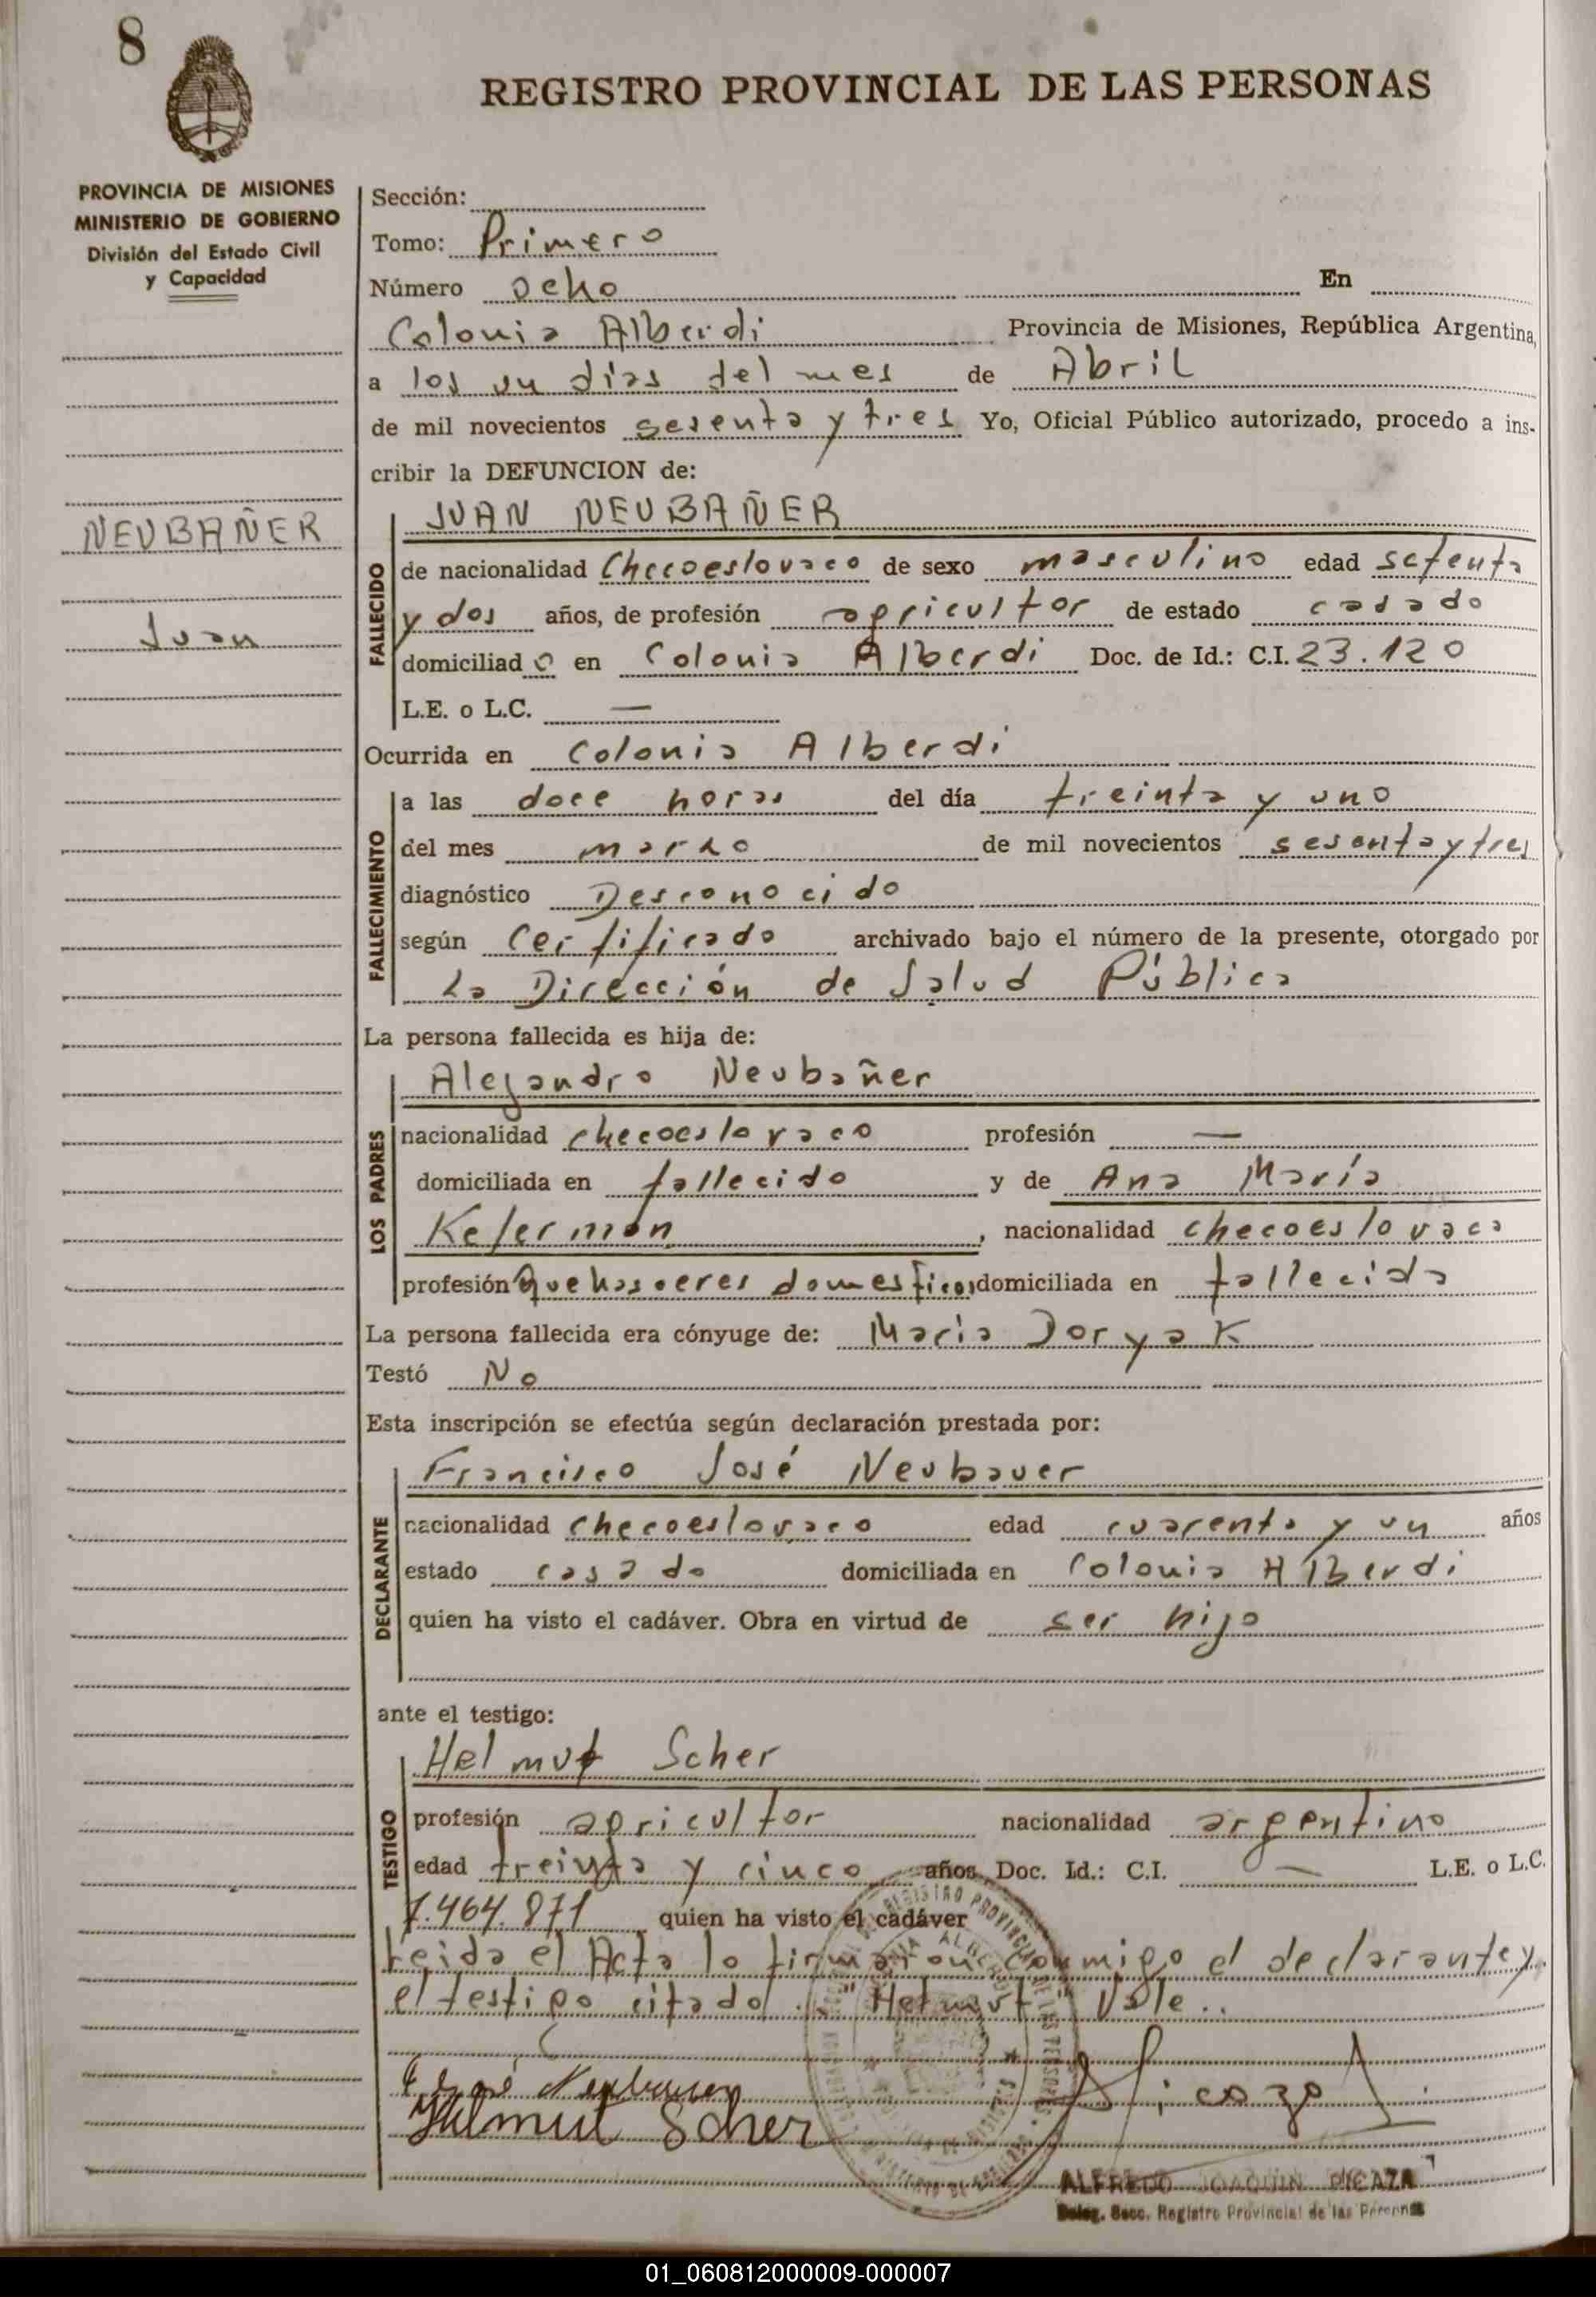 8
REGISTRO PROVINCIAL DE LAS PERSONAS
PROVINCIA DE MISIONES
MINISTERIO DE GOBIERNO
División del Estado Civil
y Capacidad
NEUBAÑER
Juan
Sección:
Tomo: Primero
Número ocho En
Colonia Alberdi Provincia de Misiones, República Argentina,
a los un días del mes de Abril
de mil novecientos sesenta y tres Yo, Oficial Público autorizado, procedo a ins-
cribir la DEFUNCION de:
JUAN NEUBAÑER
FALLECIDO
de nacionalidad Checoeslovaco de sexo masculino edad setenta
y dos años, de profesión agricultor de estado casado
domiciliado en Colonia Alberdi Doc. de Id.: C.I. 23.120
L.E. o L.C. —
Ocurrida en Colonia Alberdi
FALLECIMIENTO
a las doce horas del día treinta y uno
del mes marzo de mil novecientos sesenta y tres
diagnóstico Desconocido
según Certificado archivado bajo el número de la presente, otorgado por
La Dirección de Salud Pública
La persona fallecida es hija de:
LOS PADRES
Alejandro Neubañer
nacionalidad checoeslovaco profesión —
domiciliada en fallecido y de Ana María
Keferman, nacionalidad checoeslovaca
profesión Quehaseres domesticos domiciliada en fallecida
La persona fallecida era cónyuge de: María Doryak
Testó No
Esta inscripción se efectúa según declaración prestada por:
DECLARANTE
Francisco José Neubauer
nacionalidad checoeslovaco edad cuarenta y un años
estado casado domiciliada en Colonia Alberdi
quien ha visto el cadáver. Obra en virtud de ser hijo
ante el testigo:
TESTIGO
Helmut Scher
profesión agricultor nacionalidad argentino
edad treinta y cinco años Doc. Id.: C.I. — L.E. o L.C.
7.464.871 quien ha visto el cadáver
Leida el Acta lo firmaron conmigo el declarante y
el testigo citado. "Helmut" Vale..
José Neubauer
Helmut Scher
Picaza
ALFREDO JOAQUIN PICAZA
Deleg. Secc. Registro Provincial de las Personas
01_060812000009-000007